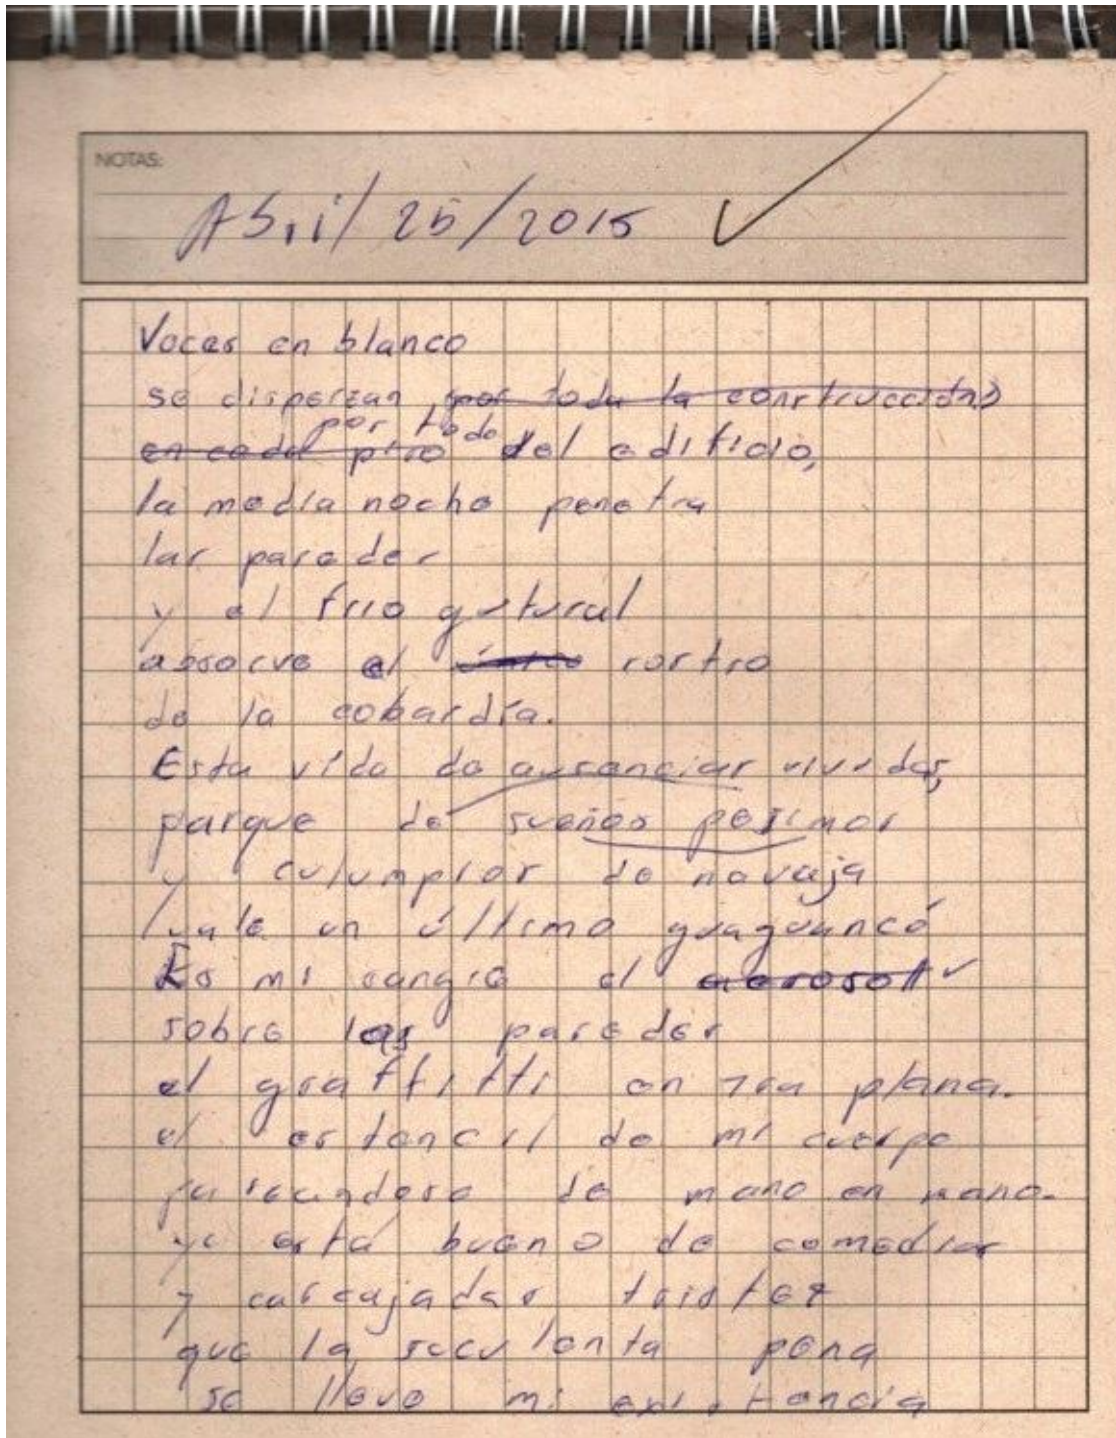 NOTAS:
Abril/25/2015
Voces en blanco
se disperzan por toda la construcción
en cada piso por todo del edificio,
la media noche penetra
las paredes
y el frio gutural
absorve el único rostro
de la cobardía.
Esta vida de ausencias vividas,
parque de sueños pesimos
y culumpios de navaja
vale un último guaguancó
Es mi sangre el aerosol
sobre las paredes
el graffitti en 1ra plana.
el estencil de mi cuerpo
de mano en mano.
ya está bueno de comedias
y carcajadas tristez
que la suculenta pena
se lleve mi existencia